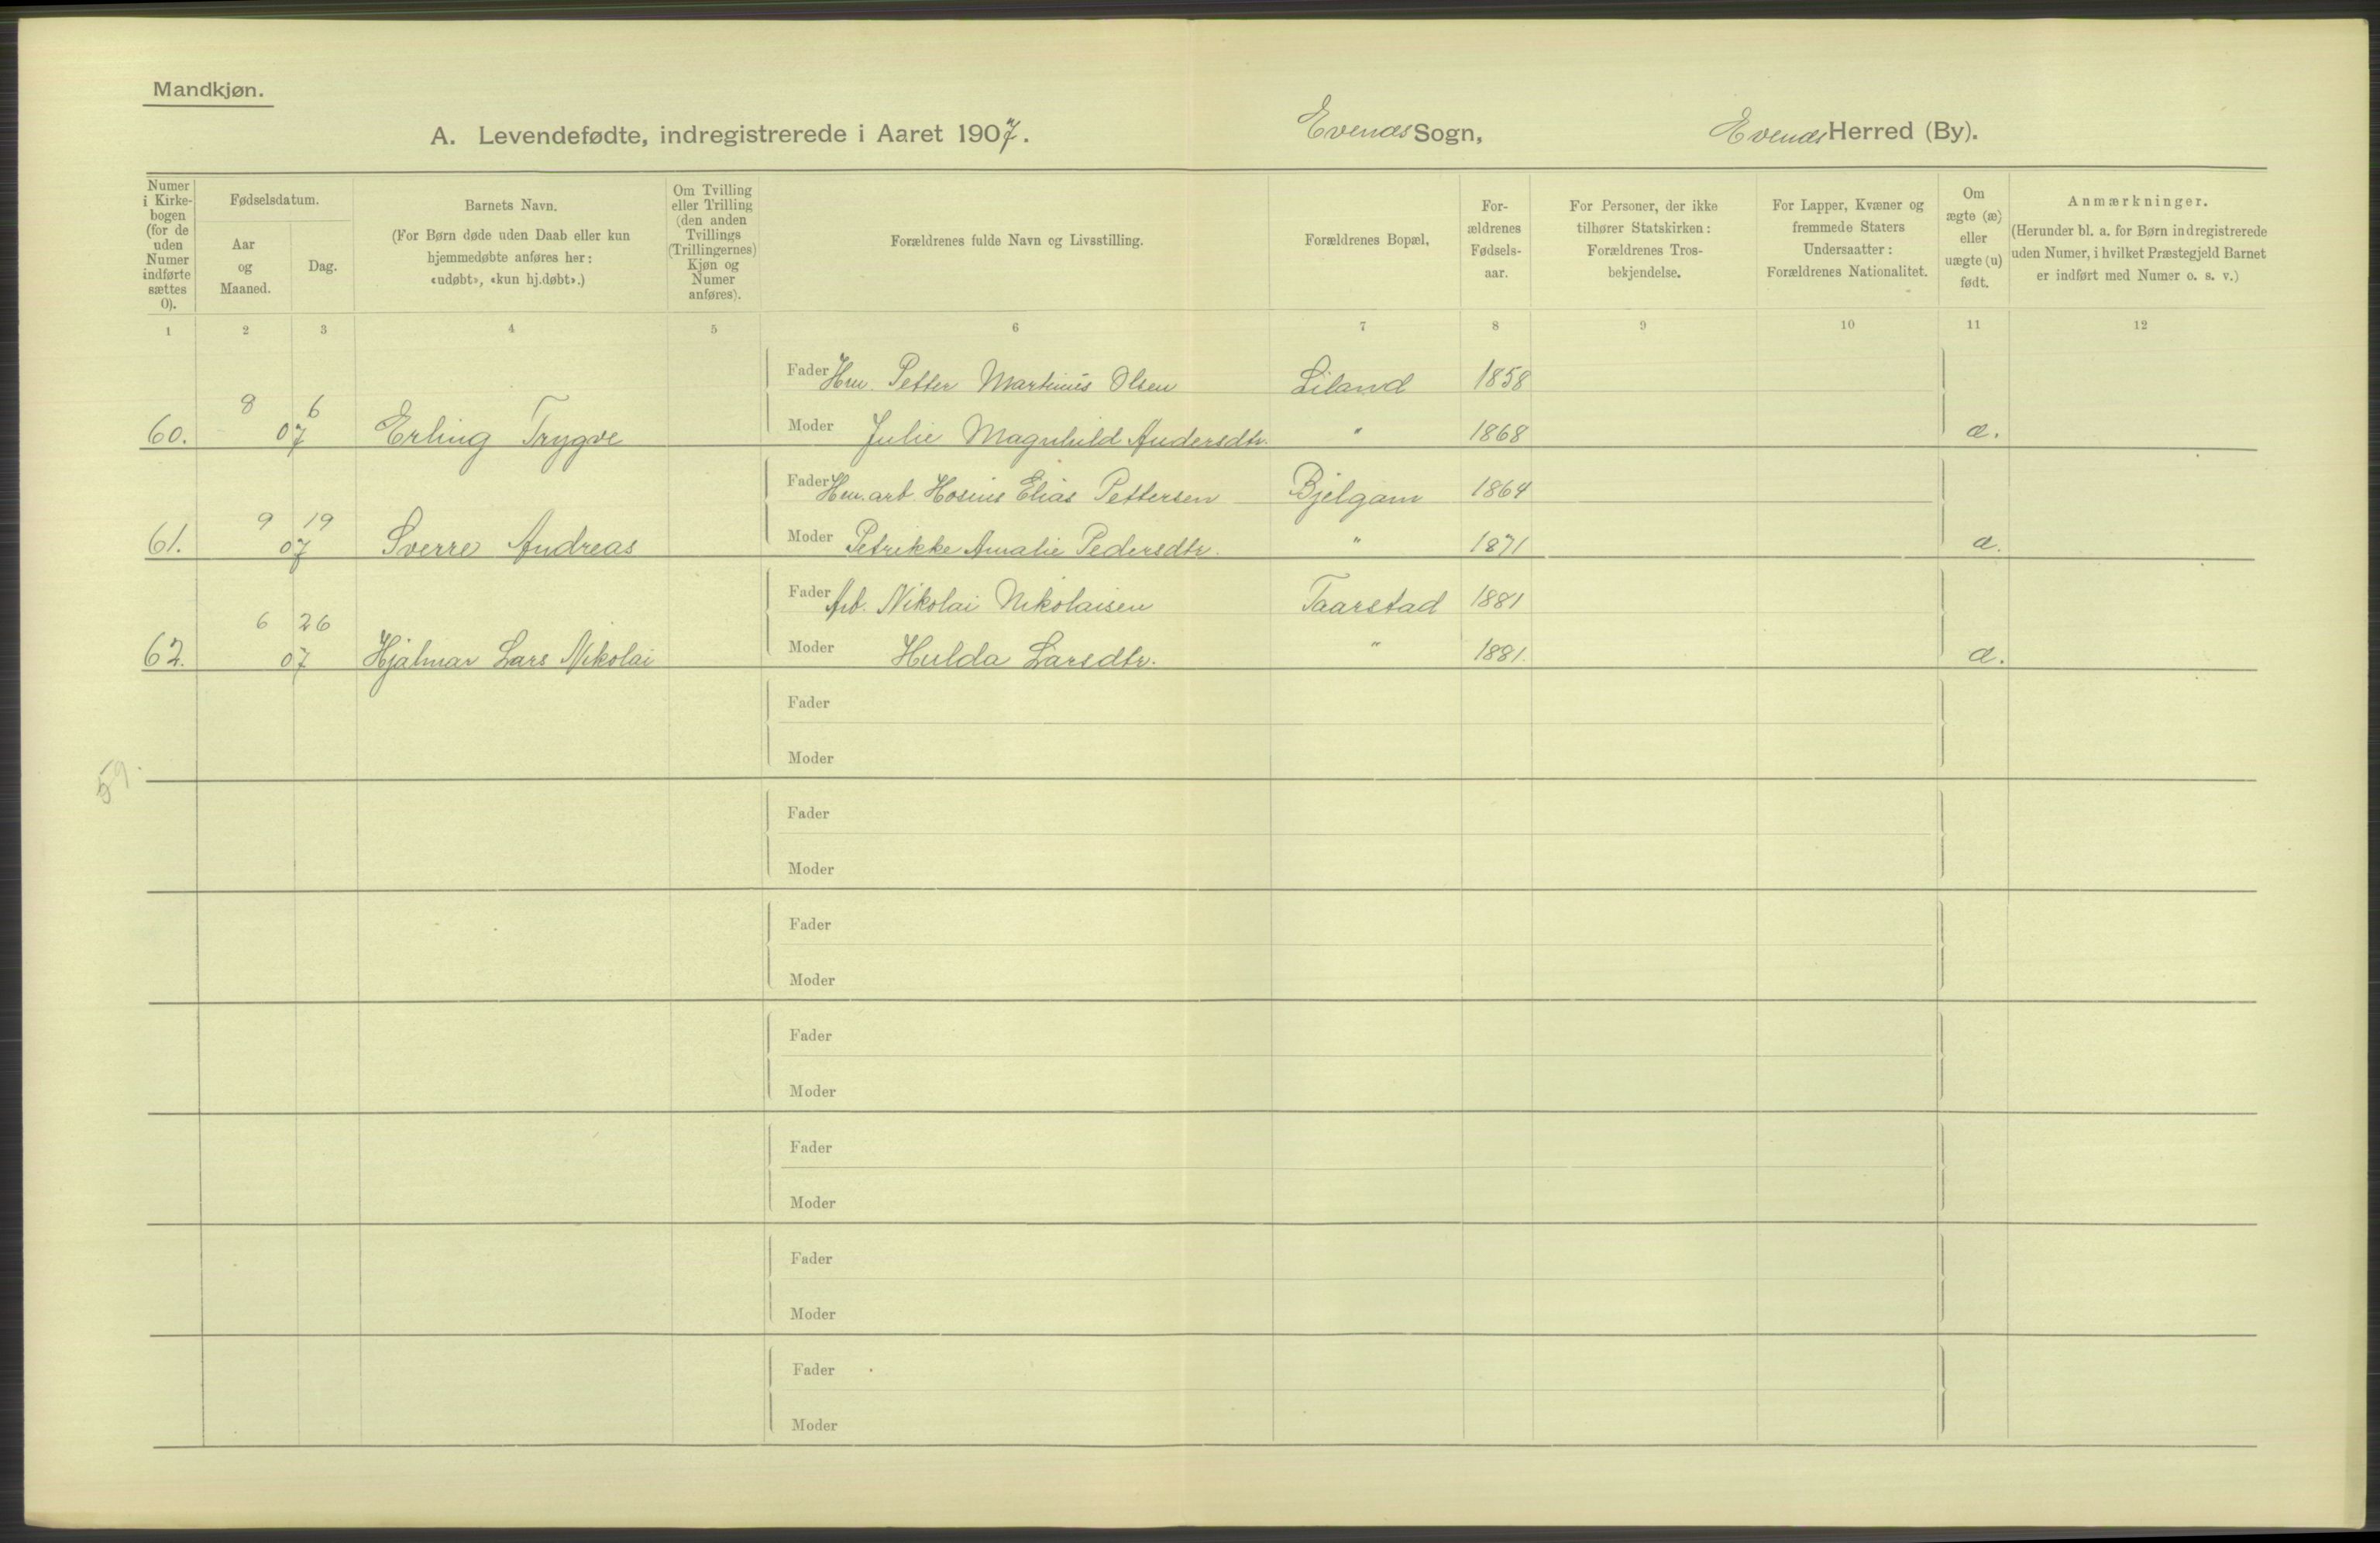 Mandkjøn.
A. Levendefødte, indregistrerede i Aaret 1907. Evenæs Sogn, Evenæs Herred (By).
Numer i Kirkebogen (for de uden Numer indførte sættes 0).
Fødselsdatum.
Aar og Maaned.
Dag.
Barnets Navn.
(For Børn døde uden Daab eller kun
hjemmedøbte anføres her:
«udøbt», «kun hj.døbt».)
Om Tvilling
eller Trilling
(den anden
Tvillings
(Trillingernes)
Kjøn og
Numer
anføres).
Forældrenes fulde Navn og Livsstilling.
Forældrenes Bopæl,
For-
ældrenes
Fødsels-
aar.
For Personer, der ikke
tilhører Statskirken:
Forældrenes Tros-
bekjendelse.
For Lapper, Kvæner og
fremmede Staters
Undersaatter:
Forældrenes Nationalitet.
Om
ægte (æ)
eller
uægte (u)
født.
Anmærkninger.
(Herunder bl. a. for Børn indregistrerede
uden Numer, i hvilket Præstegjeld Barnet
er indført med Numer o. s. v.)
1 2 3 4 5 6 7 8 9 10 11 12
Fader Hm. Petter Martinus Olsen Liland 1858
8 6
60. 07 Erling Trygve Moder Julie Magnhild Andersdtr. " 1868 æ.
Fader Hm. arb. Hosius Elias Pettersen Bjelgam 1864
9 19
61. 07 Sverre Andreas Moder Petrikke Amalie Pedersdtr. " 1871 æ.
Fader Arb. Nikolai Nikolaisen Taarstad 1881
6 26
62. 07 Hjalmar Lars Nikolai Moder Hulda Larsdtr. " 1881. æ.
Fader
Moder
59.
Fader
Moder
Fader
Moder
Fader
Moder
Fader
Moder
Fader
Moder
Fader
Moder